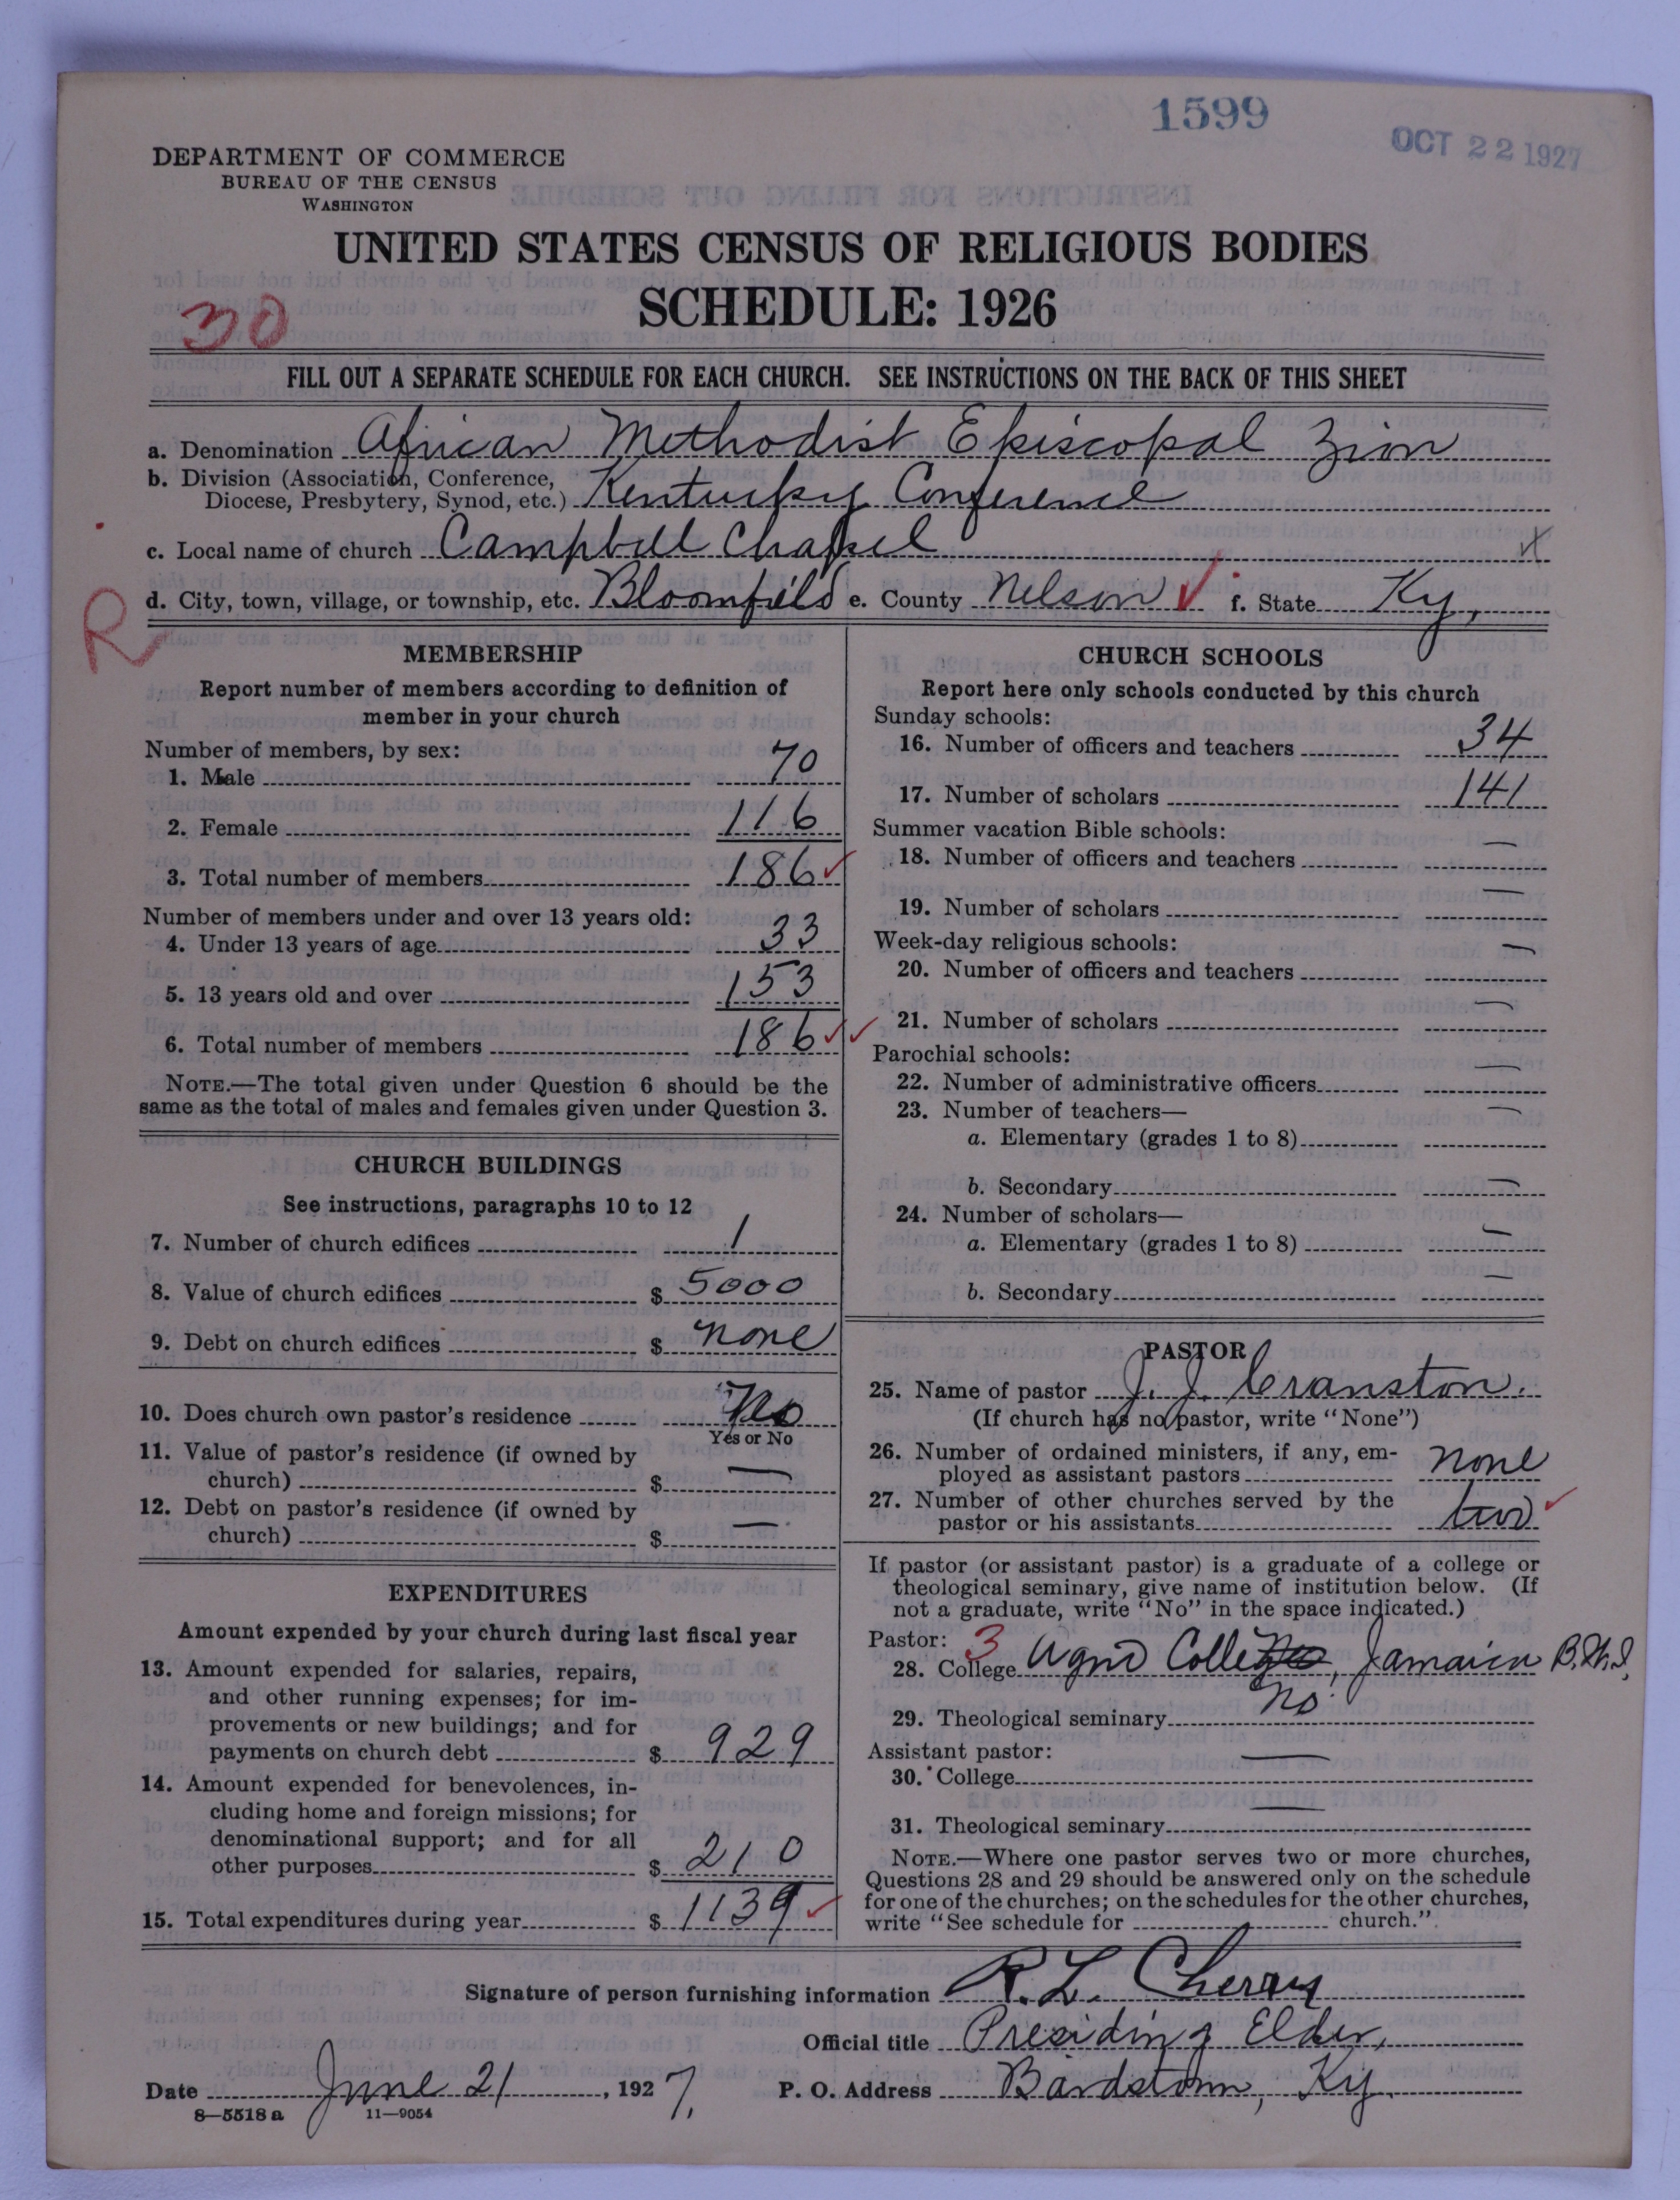 1599
OCT 22 1927
DEPARTMENT OF COMMERCE
BUREAU OF THE CENSUS
WASHINGTON
UNITED STATES CENSUS OF RELIGIOUS BODIES
SCHEDULE: 1926
30
FILL OUT A SEPARATE SCHEDULE FOR EACH CHURCH. SEE INSTRUCTIONS ON THE BACK OF THIS SHEET
a. Denomination African Methodist Episcopal Zion
b. Division (Association, Conference,
Diocese, Presbytery, Synod, etc.) Kentucky Conference
c. Local name of church Campbell Chapel
R
d. City, town, village, or township, etc. Bloomfield e. County Nelson ✓ f. State Ky,
MEMBERSHIP
Report number of members according to definition of
member in your church
Number of members, by sex:
1. Male 70
2. Female 116
3. Total number of members 186 ✓
Number of members under and over 13 years old:
4. Under 13 years of age 33
5. 13 years old and over 153
6. Total number of members 186 ✓✓
NOTE.—The total given under Question 6 should be the
same as the total of males and females given under Question 3.
CHURCH BUILDINGS
See instructions, paragraphs 10 to 12
7. Number of church edifices 1
8. Value of church edifices $ 5000
9. Debt on church edifices $ none
10. Does church own pastor's residence No
Yes or No
11. Value of pastor's residence (if owned by
church) $ —
12. Debt on pastor's residence (if owned by
church) $ —
EXPENDITURES
Amount expended by your church during last fiscal year
13. Amount expended for salaries, repairs,
and other running expenses; for im-
provements or new buildings; and for
payments on church debt $ 929
14. Amount expended for benevolences, in-
cluding home and foreign missions; for
denominational support; and for all
other purposes $ 210
15. Total expenditures during year $ 1139 ✓
CHURCH SCHOOLS
Report here only schools conducted by this church
Sunday schools:
16. Number of officers and teachers 34
17. Number of scholars 141
Summer vacation Bible schools:
18. Number of officers and teachers —
19. Number of scholars —
Week-day religious schools:
20. Number of officers and teachers —
21. Number of scholars —
Parochial schools:
22. Number of administrative officers —
23. Number of teachers—
a. Elementary (grades 1 to 8) —
b. Secondary —
24. Number of scholars—
a. Elementary (grades 1 to 8) —
b. Secondary —
PASTOR
25. Name of pastor J. J. Cranston.
(If church has no pastor, write "None")
26. Number of ordained ministers, if any, em-
ployed as assistant pastors none
27. Number of other churches served by the
pastor or his assistants two ✓
If pastor (or assistant pastor) is a graduate of a college or
theological seminary, give name of institution below. (If
not a graduate, write "No" in the space indicated.)
Pastor: 3
28. College College, Jamaica B.W.I.
29. Theological seminary No
Assistant pastor:
30. College —
31. Theological seminary —
NOTE.—Where one pastor serves two or more churches,
Questions 28 and 29 should be answered only on the schedule
for one of the churches; on the schedules for the other churches,
write "See schedule for church."
Signature of person furnishing information R. L. Cherry
Official title Presiding Elder,
Date June 21, 1927. P. O. Address Bardstown, Ky.
8—5518 a 11—9054